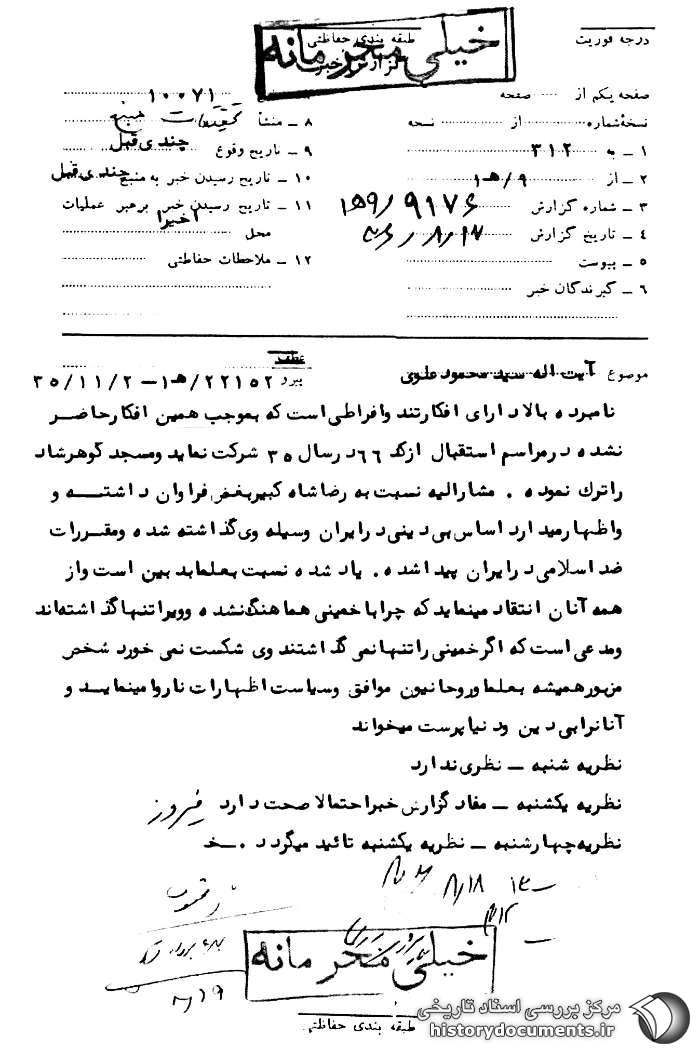 درجه فوریت
طبقه بندی حفاظتی
گزارش خبر
خیلی محرمانه
صفحه یکم از ..... صفحه
نسخه شماره .......... از ......... نسخه
۱ – به ۳۱۲
۲ – از ۹/ه‍۱
۳ – شماره گزارش ۹۱۷۶/۱ه‍۹
۴ – تاریخ گزارش ۱۷/۸/
۵ – پیوست
۶ – گیرندگان خبر
۱۰۰۷۱
۸ – منشأ
۹ – تاریخ وقوع چندی قبل
۱۰ – تاریخ رسیدن خبر به منبع چندی قبل
۱۱ – تاریخ رسیدن خبر برهبر عملیات اخیرا
محل
۱۲ – ملاحظات حفاظتی
موضوع آیت اله سید محمود علوی
عطف
پیرو ۲۲۱۵۲/ه‍۱–۳۵/۱۱/۲
نامبرده بالا دارای افکار تند وافراطی است که بموجب همین افکار حاضر
نشده در مراسم استقبال از کد ۶۶ در سال ۳۵ شرکت نماید ومسجد گوهرشاد
را ترك نموده . مشارالیه نسبت به رضاشاه کبیر بغض فراوان داشته و
واظهار میدارد اساس بی دینی در ایران وسیله وی گذاشته شده ومقررات
ضد اسلامی در ایران پیدا شده . یاد شده نسبت بعلما بد بین است واز
همه آنان انتقاد مینماید که چرا با خمینی هماهنگ نشده وویرا تنها گذاشته اند
ومدعی است که اگر خمینی را تنها نمی گذاشتند وی شکست نمی خورد شخص
مزبور همیشه بعلما وروحانیون موافق وسیاست اظهارات ناروا مینماید و
آنانرا بی دین ودنیا پرست میخواند
نظریه شنبه – نظری ندارد
نظریه یکشنبه – مفاد گزارش خبر احتمالا صحت دارد فیروز
نظریه چهارشنبه – نظریه یکشنبه تائید میگردد . خ
۸/۱۸
خیلی محرمانه
طبقه بندی حفاظتی
مرکز بررسی اسناد تاریخی
historydocuments.ir